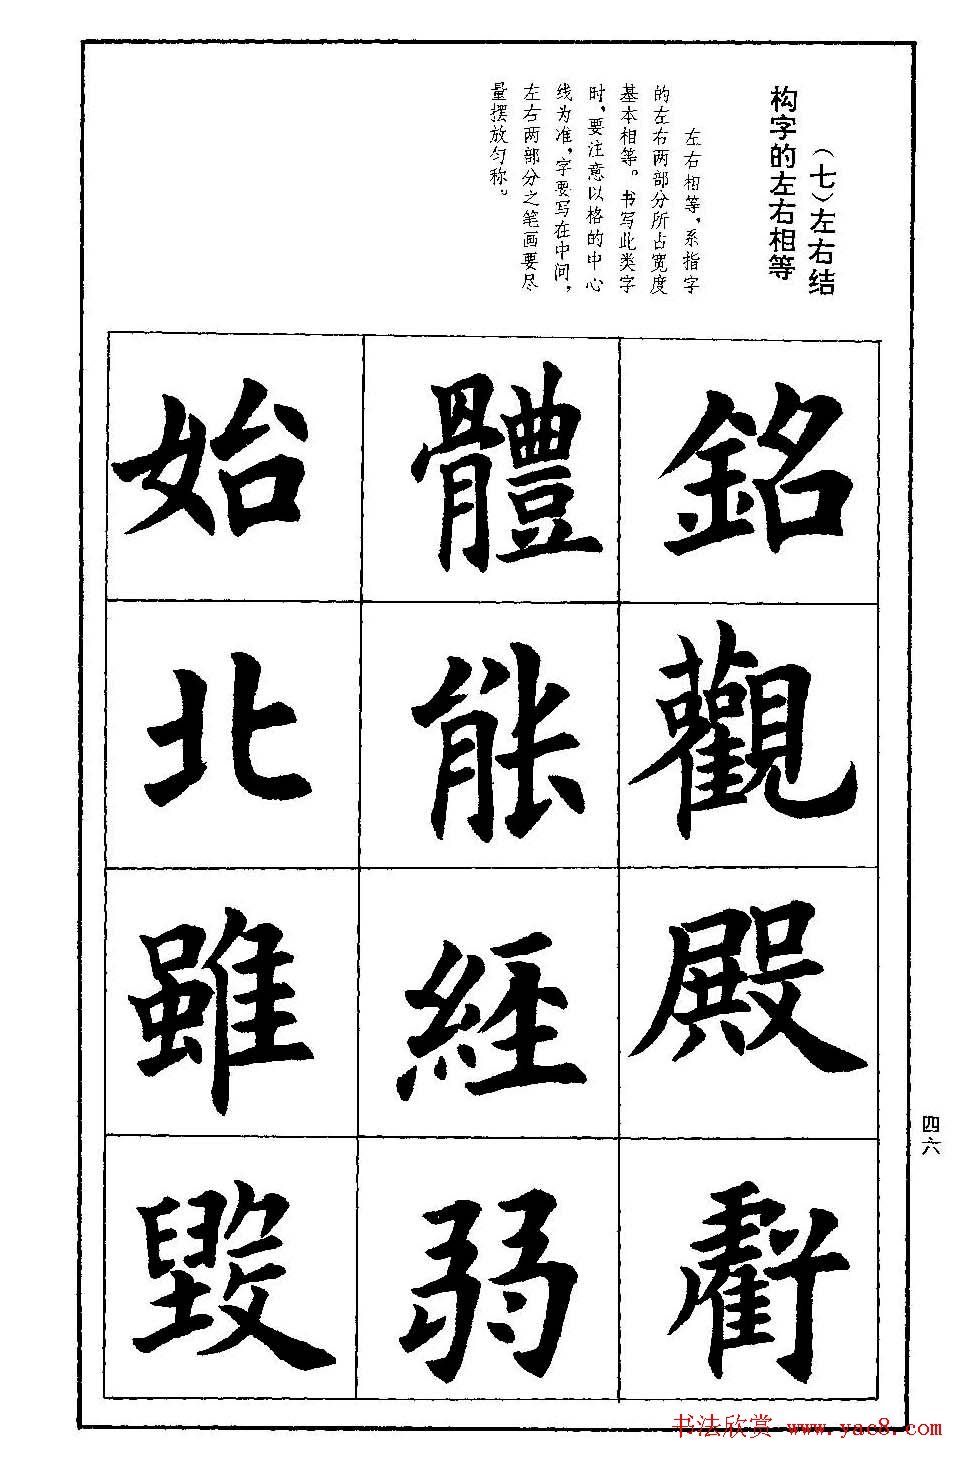 （七）左右结
构字的左右相等
左右相等，系指字
的左右两部分所占宽度
基本相等。书写此类字
时，要注意以格的中心
线为准，字要写在中间，
左右两部分之笔画要尽
量摆放匀称。
銘觀殿虧
體能經弱
始北雖毀
四六
书法欣赏 www.yac8.com